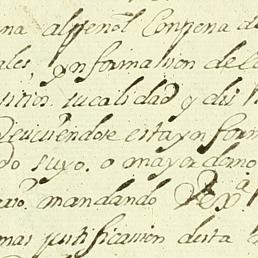 na alpeñol Conpena d
ales, ynformassion de l
sitios sucalidad y dis
Reciviendose esta ynform
do suyo. o mayordomo
mandando Rexª
mas justificassion desta